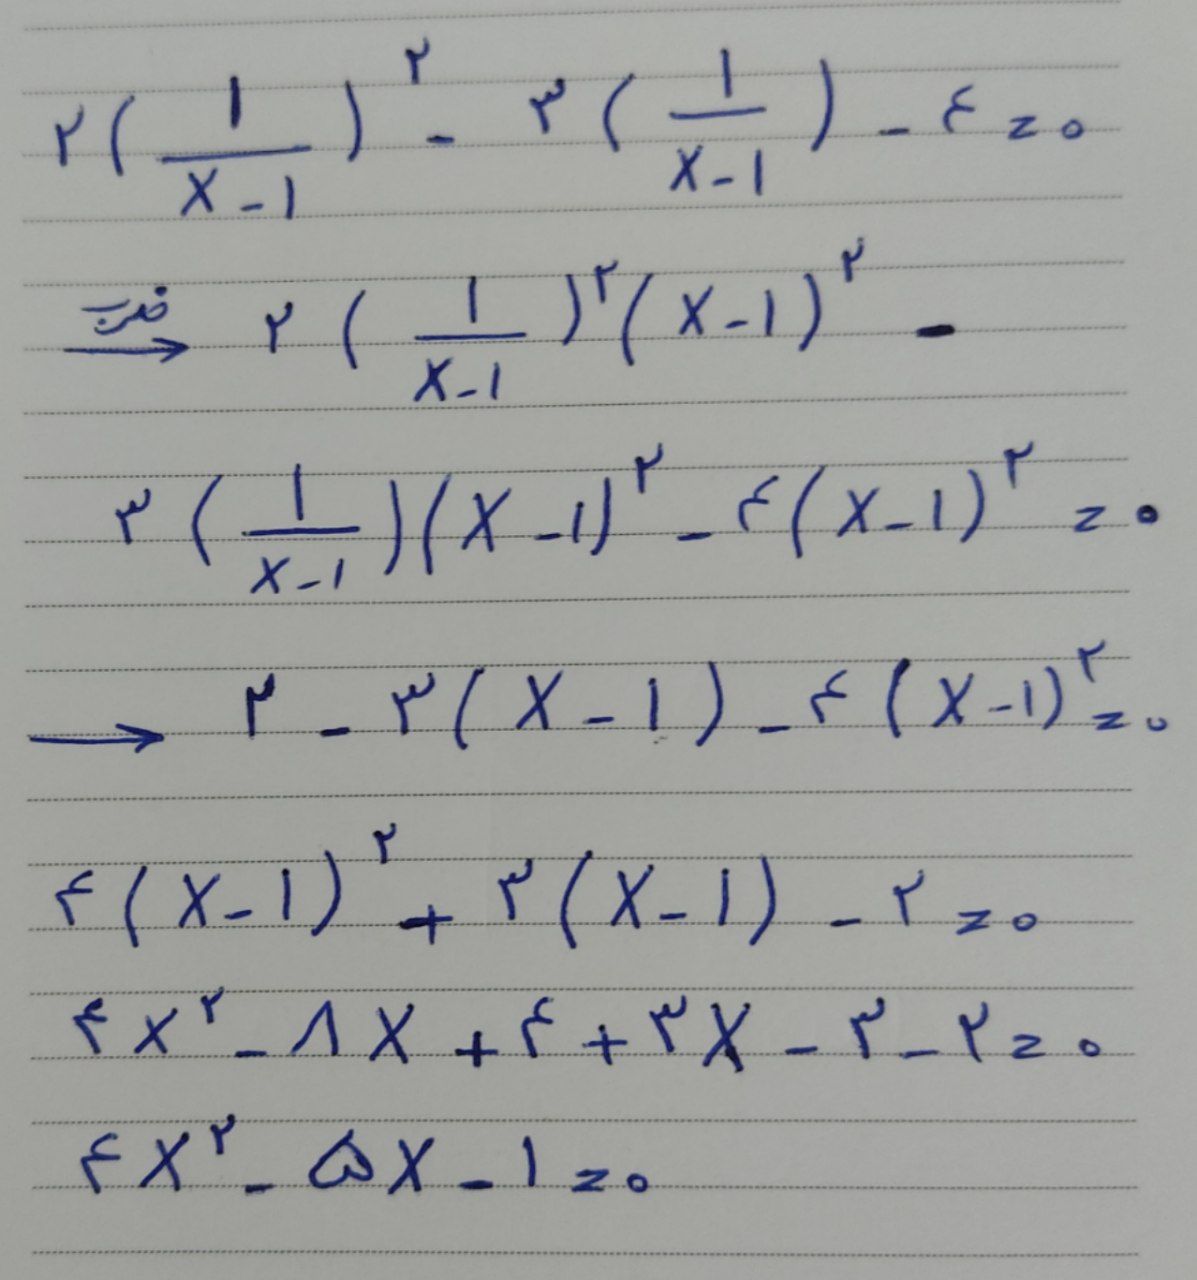 ۲(۱/(x-۱))^۲ - ۳(۱/(x-۱)) - ۴ = ۰
ضرب → ۲(۱/(x-۱))^۲(x-۱)^۲ -
۳(۱/(x-۱))(x-۱)^۲ - ۴(x-۱)^۲ = ۰
→ ۲ - ۳(x-۱) - ۴(x-۱)^۲ = ۰
۴(x-۱)^۲ + ۳(x-۱) - ۲ = ۰
۴x^۲ - ۸x + ۴ + ۳x - ۳ - ۲ = ۰
۴x^۲ - ۵x - ۱ = ۰